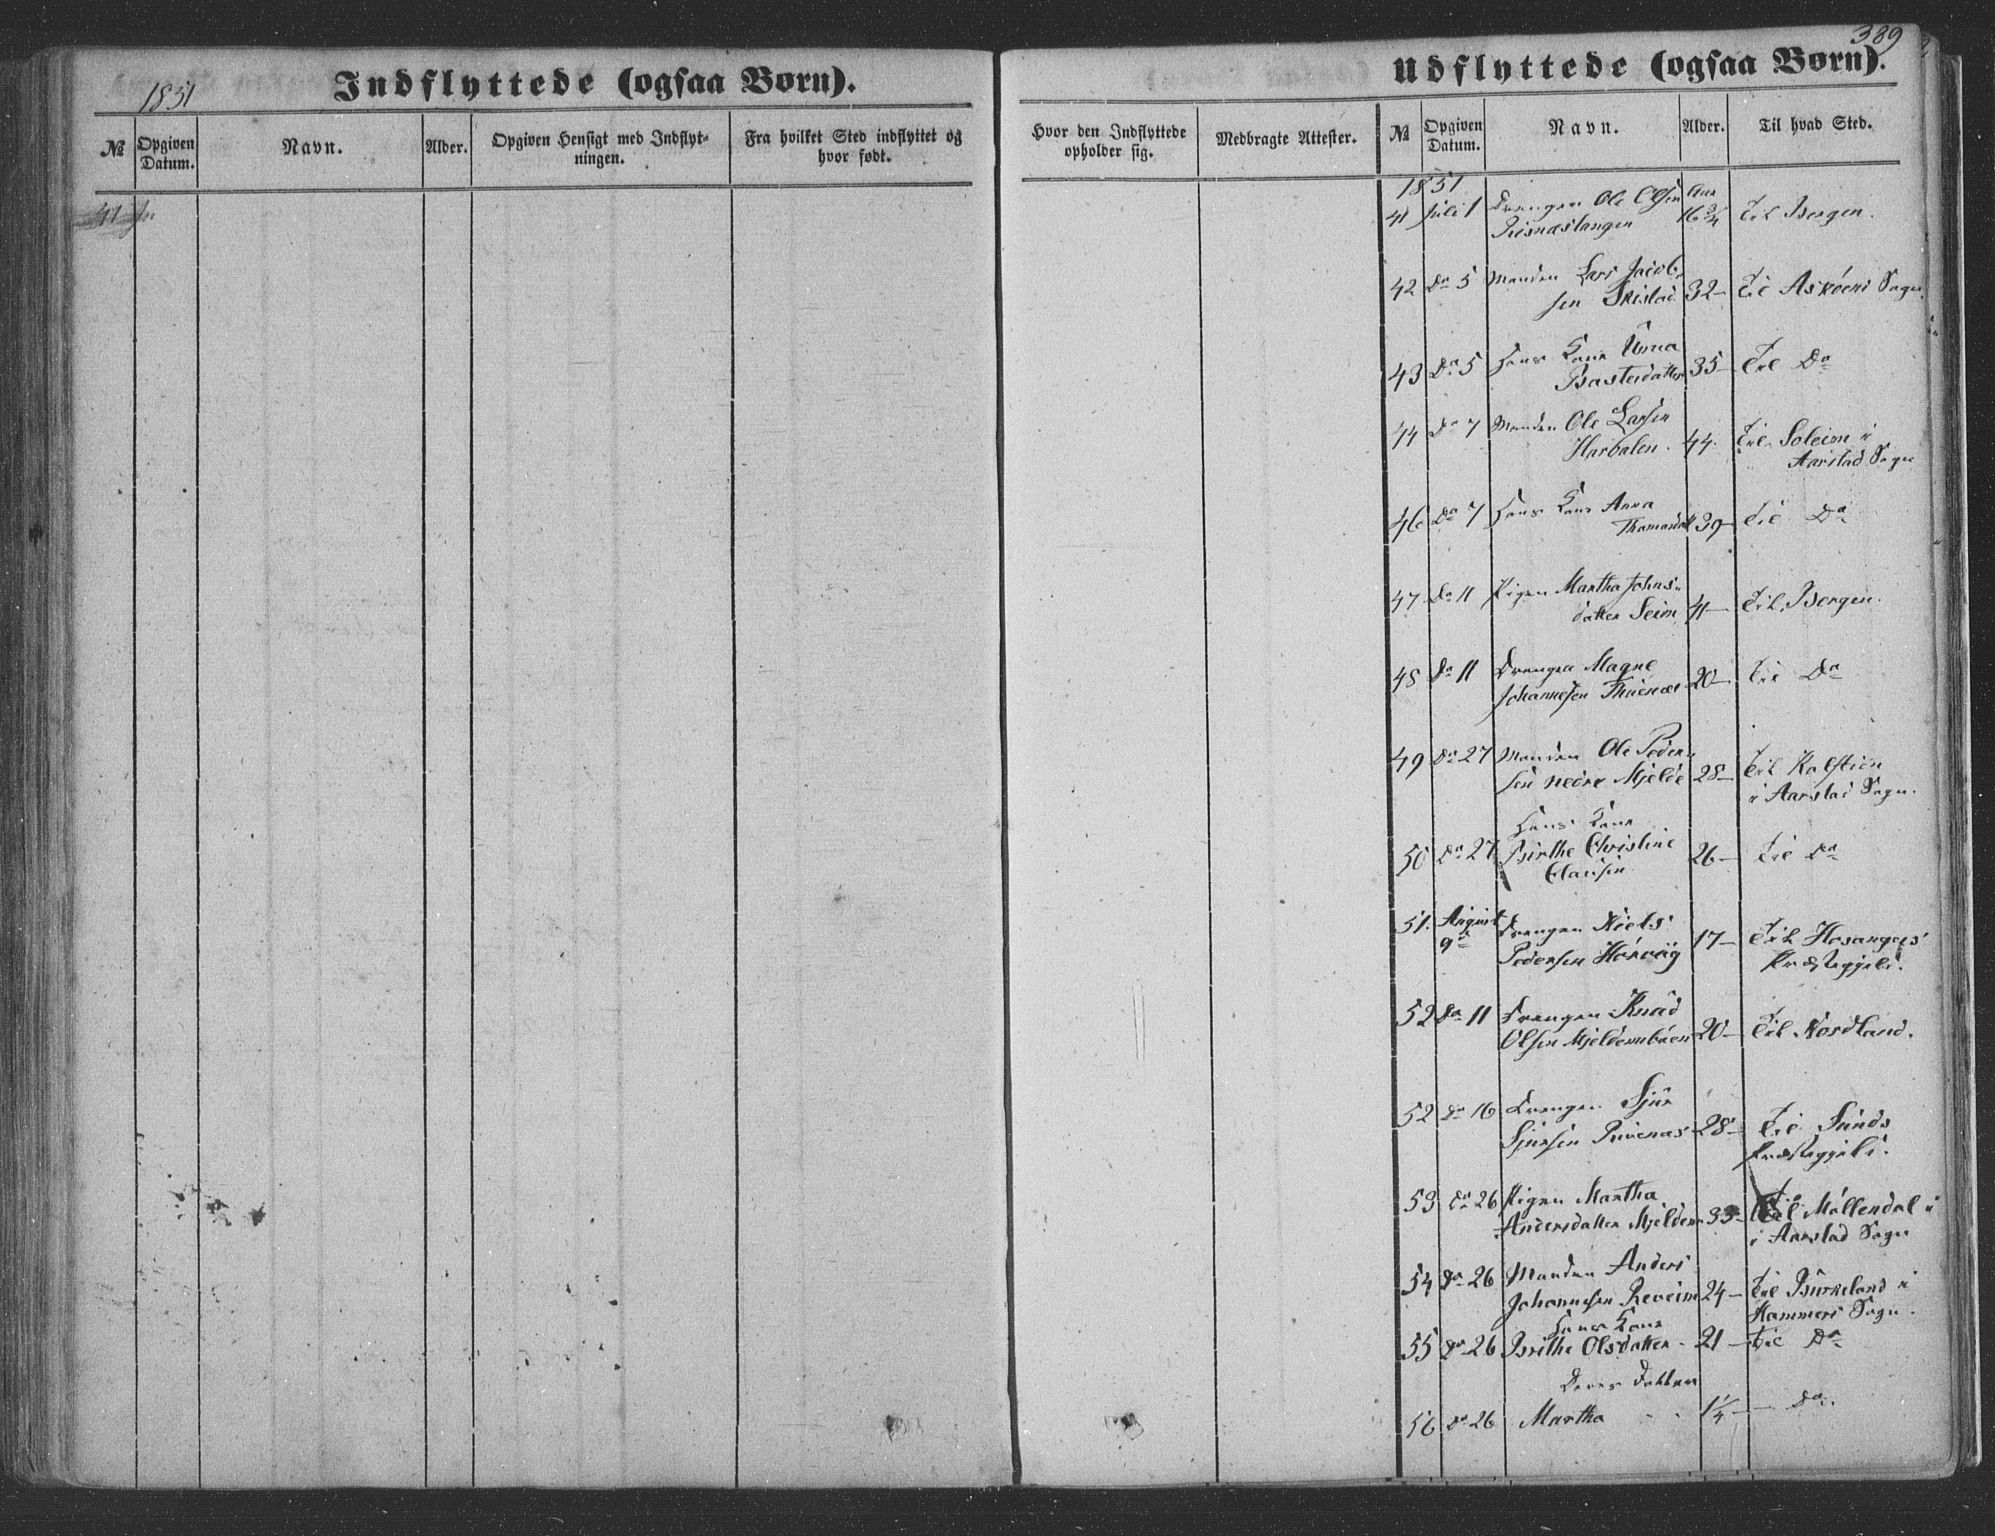 389
1851
Indflyttede (ogsaa Børn).
Udflyttede (ogsaa Børn).
№ Opgiven Datum. Navn. Alder. Opgiven Hensigt med Indflytningen. Fra hvilket Sted indflyttet og hvor født.
Hvor den Indflyttede opholder sig. Medbragte Attester. № Opgiven Datum. Navn. Alder. Til hvad Sted.
41
1851 Aar
41 Juli 1 Drengen Ole Olsen 16 3/4 Til Bergen.
Risnæstangen
42 Do 5 Manden Lars Jacob- 32 Til Askøens Sogn
sen
43 Do 5 Hans Kone Anna 35 Til Do
Bastesdatter
44 Do 7 Manden Ole Larsen 44. Til Soleim i
Aarstad Sogn
46 Do 7 Hans Kone Anna 39 Til Do
Thomasdatt
47. Do 11 Pigen Martha Johns- 41 Til Bergen.
datter Seim
48 Do 11 Drengen Magne 20 Til Do
Johannesen
49 Do 27 Manden Ole Peder- Til
sen nedre Mjelde 28 i Aarstad Sogn.
Hans Kone
50 Do 27 Birthe Christine 26 Til Do
Clausen
51. August 9de Drengen Niels 17 Til Hosangers
Pedersen Præstegjeld.
52 Do 11 Drengen Knud
Olsen 20 Til Nordland.
52 Do 16 Drengen Sjur Til Sunds
Sjursen 28 Præstegjeld.
53 Do 26 Pigen Martha Til Møllendal i
Andersdatter 33 i Aarstad Sogn
54 Do 26 Manden Anders
Johannesen 24 Til Birkeland i
Hans Kone Hammers Sogn.
55 Do 26 Brithe Olsdatter 21 Til Do
Deres Datter
56 Do 26 Martha 1/4 Do.